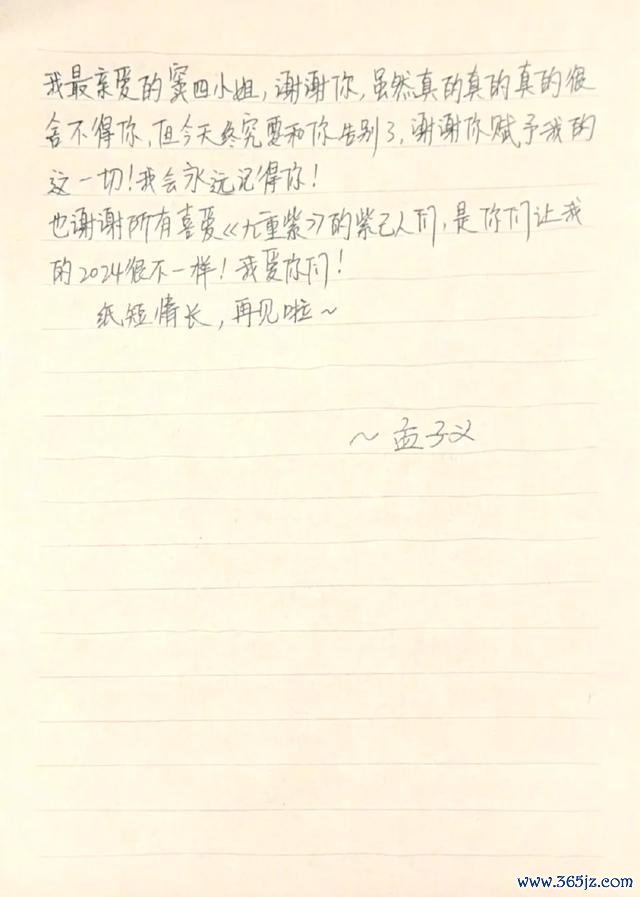 我最亲爱的窦四小姐，谢谢你，虽然真的真的真的很
舍不得你，但今天终究要和你告别了，谢谢你赋予我的
这一切！我会永远记得你！
也谢谢所有喜爱《九重紫》的紫己人们，是你们让我
的2024很不一样！我爱你们！
纸短情长，再见啦～
～孟子义
www.365jz.com